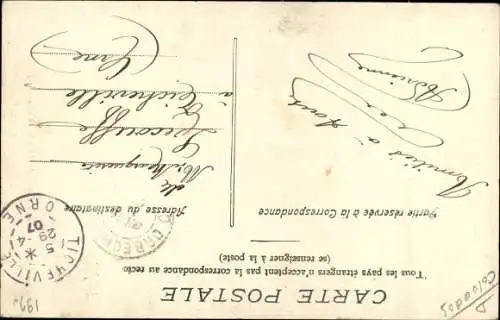 CARTE POSTALE
Tous les pays étrangers n'acceptent pas la correspondance au recto
(se renseigner à la poste)
Partie réservée à la Correspondance
Adresse du destinataire
Amitiés à tous
Adrienne
Mlle Marguerite
Lecouffe
à Ticheville
(Orne)
TICHEVILLE
5 *
29-4
07
ORNE
ORBEC
Calvados